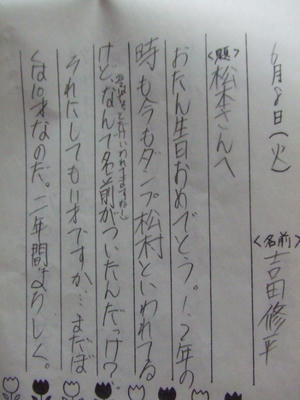 6月8日（火）
＜名前＞吉田修平
＜題＞松本さんへ
おたん生日おめでとう。1.2年の
時も今もダンプ松村といわれてる
けどなんで名前がついたんだっけ？
それにしてもいいですか…まだぼ
くは10才なのだ。二年間よろしく。